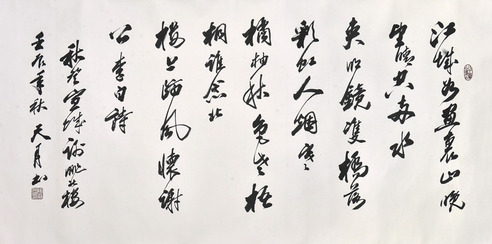 江城如畫裏山晚
望晴空两水
夾明鏡雙橋落
彩虹人烟寒
橘柚秋色老梧
桐誰念北
樓上臨風懷謝
公李白詩
秋登宣城謝朓北樓
壬辰年秋天月书